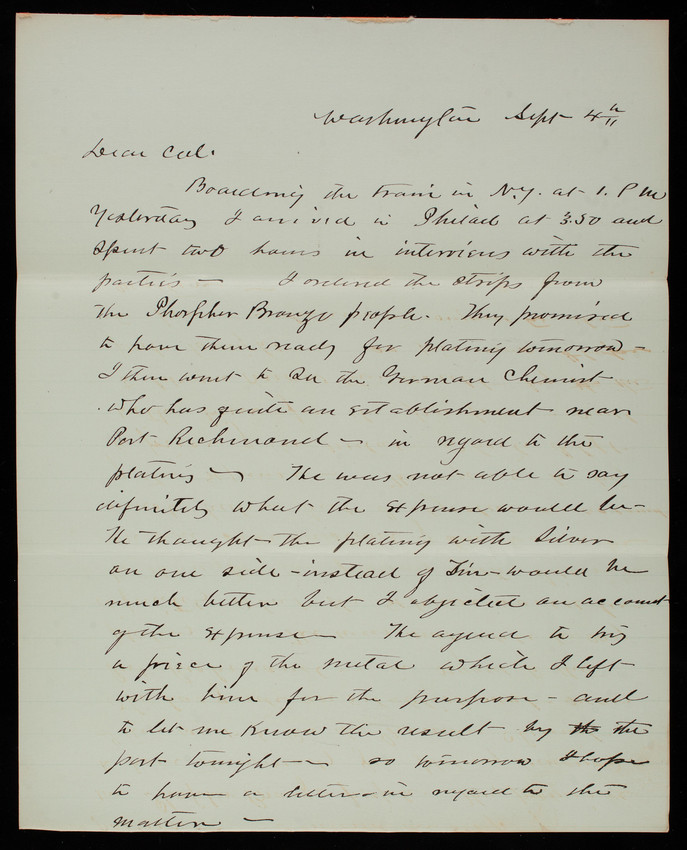 Washington Sept 4th
Dear Col.
Boarding the train in N.Y. at 1. P m
Yesterday I arrived in Philad at 3.50 and
spent two hours in interviews with the
parties — I ordered the strips from
the Phosphor Bronze people. They promised
to have them ready for plating tomorrow —
I then went to see the German Chemist
who has quite an establishment near
Port Richmond — in regard to the
plating — He was not able to say
definitely what the expense would be —
He thought the plating with Silver
on one side - instead of Tin - would be
much better but I objected on account
of the expense — He agreed to try
a piece of the metal which I left
with him for the purpose - and
to let me know the result by th the
post tonight — so tomorrow I hope
to have a letter in regard to the
matter —